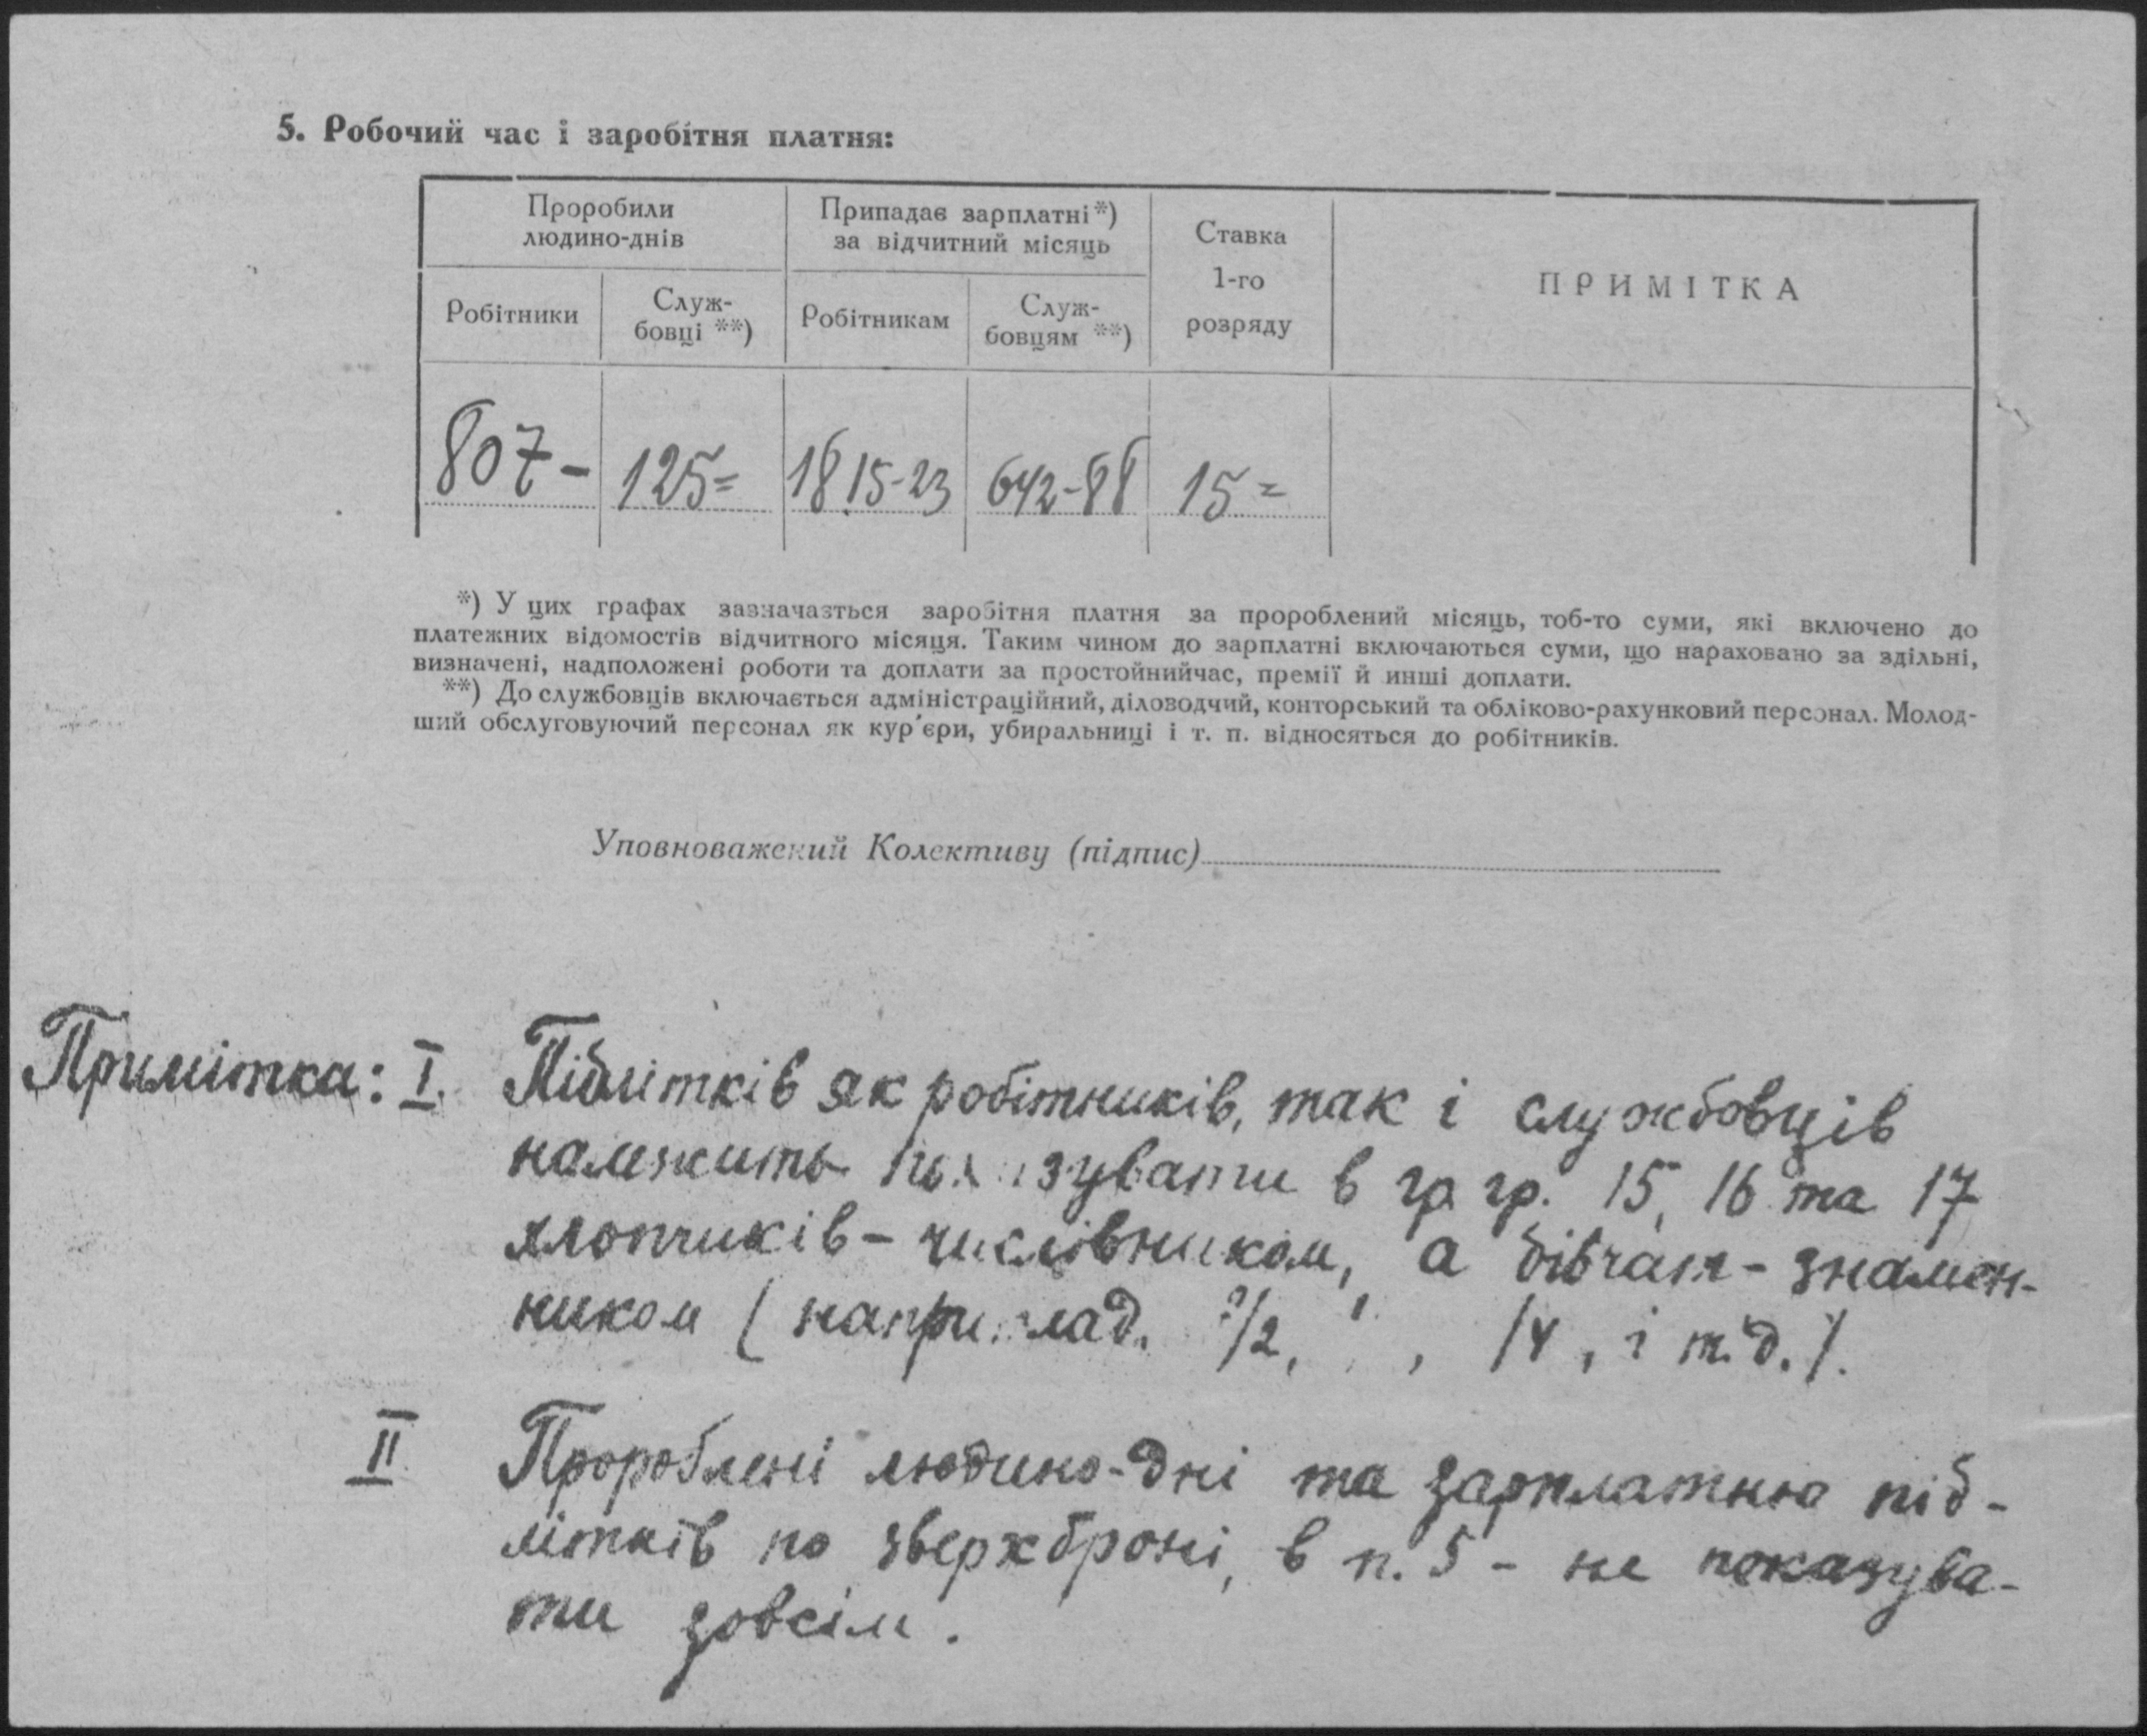 5. Робочий час і заробітня платня:
Проробили
людино-днів
Припадає зарплатні *)
за відчитний місяць
Ставка
1-го
розряду
ПРИМІТКА
Робітники
Служ-
бовці **)
Робітникам
Служ-
бовцям **)
807- 125= 1815-23 642-88 15=
*) У цих графах зазначазться заробітня платня за пророблений місяць, тоб-то суми, які включено до
платежних відомостів відчитного місяця. Таким чином до зарплатні включаються суми, що нараховано за здільні,
визначені, надположені роботи та доплати за простойнийчас, премії й инші доплати.
**) До службовців включається адміністраційний, діловодчий, конторський та обліково-рахунковий персонал. Молод-
ший обслуговуючий персонал як кур'єри, убиральниці і т. п. відносяться до робітників.
Уповноважений Колективу (підпис)
Примітка: I. Підлітків як робітників, так і службовців
належить показувати в гр. гр. 15, 16 та 17
хлопчиків - числівником, а дівчат - знамен-
ником (наприклад. /2, /4, і т.д.).
II Пророблені людино-дні та зарплатню під-
літків по зверхброні, в п. 5 - не показува-
ти зовсім.